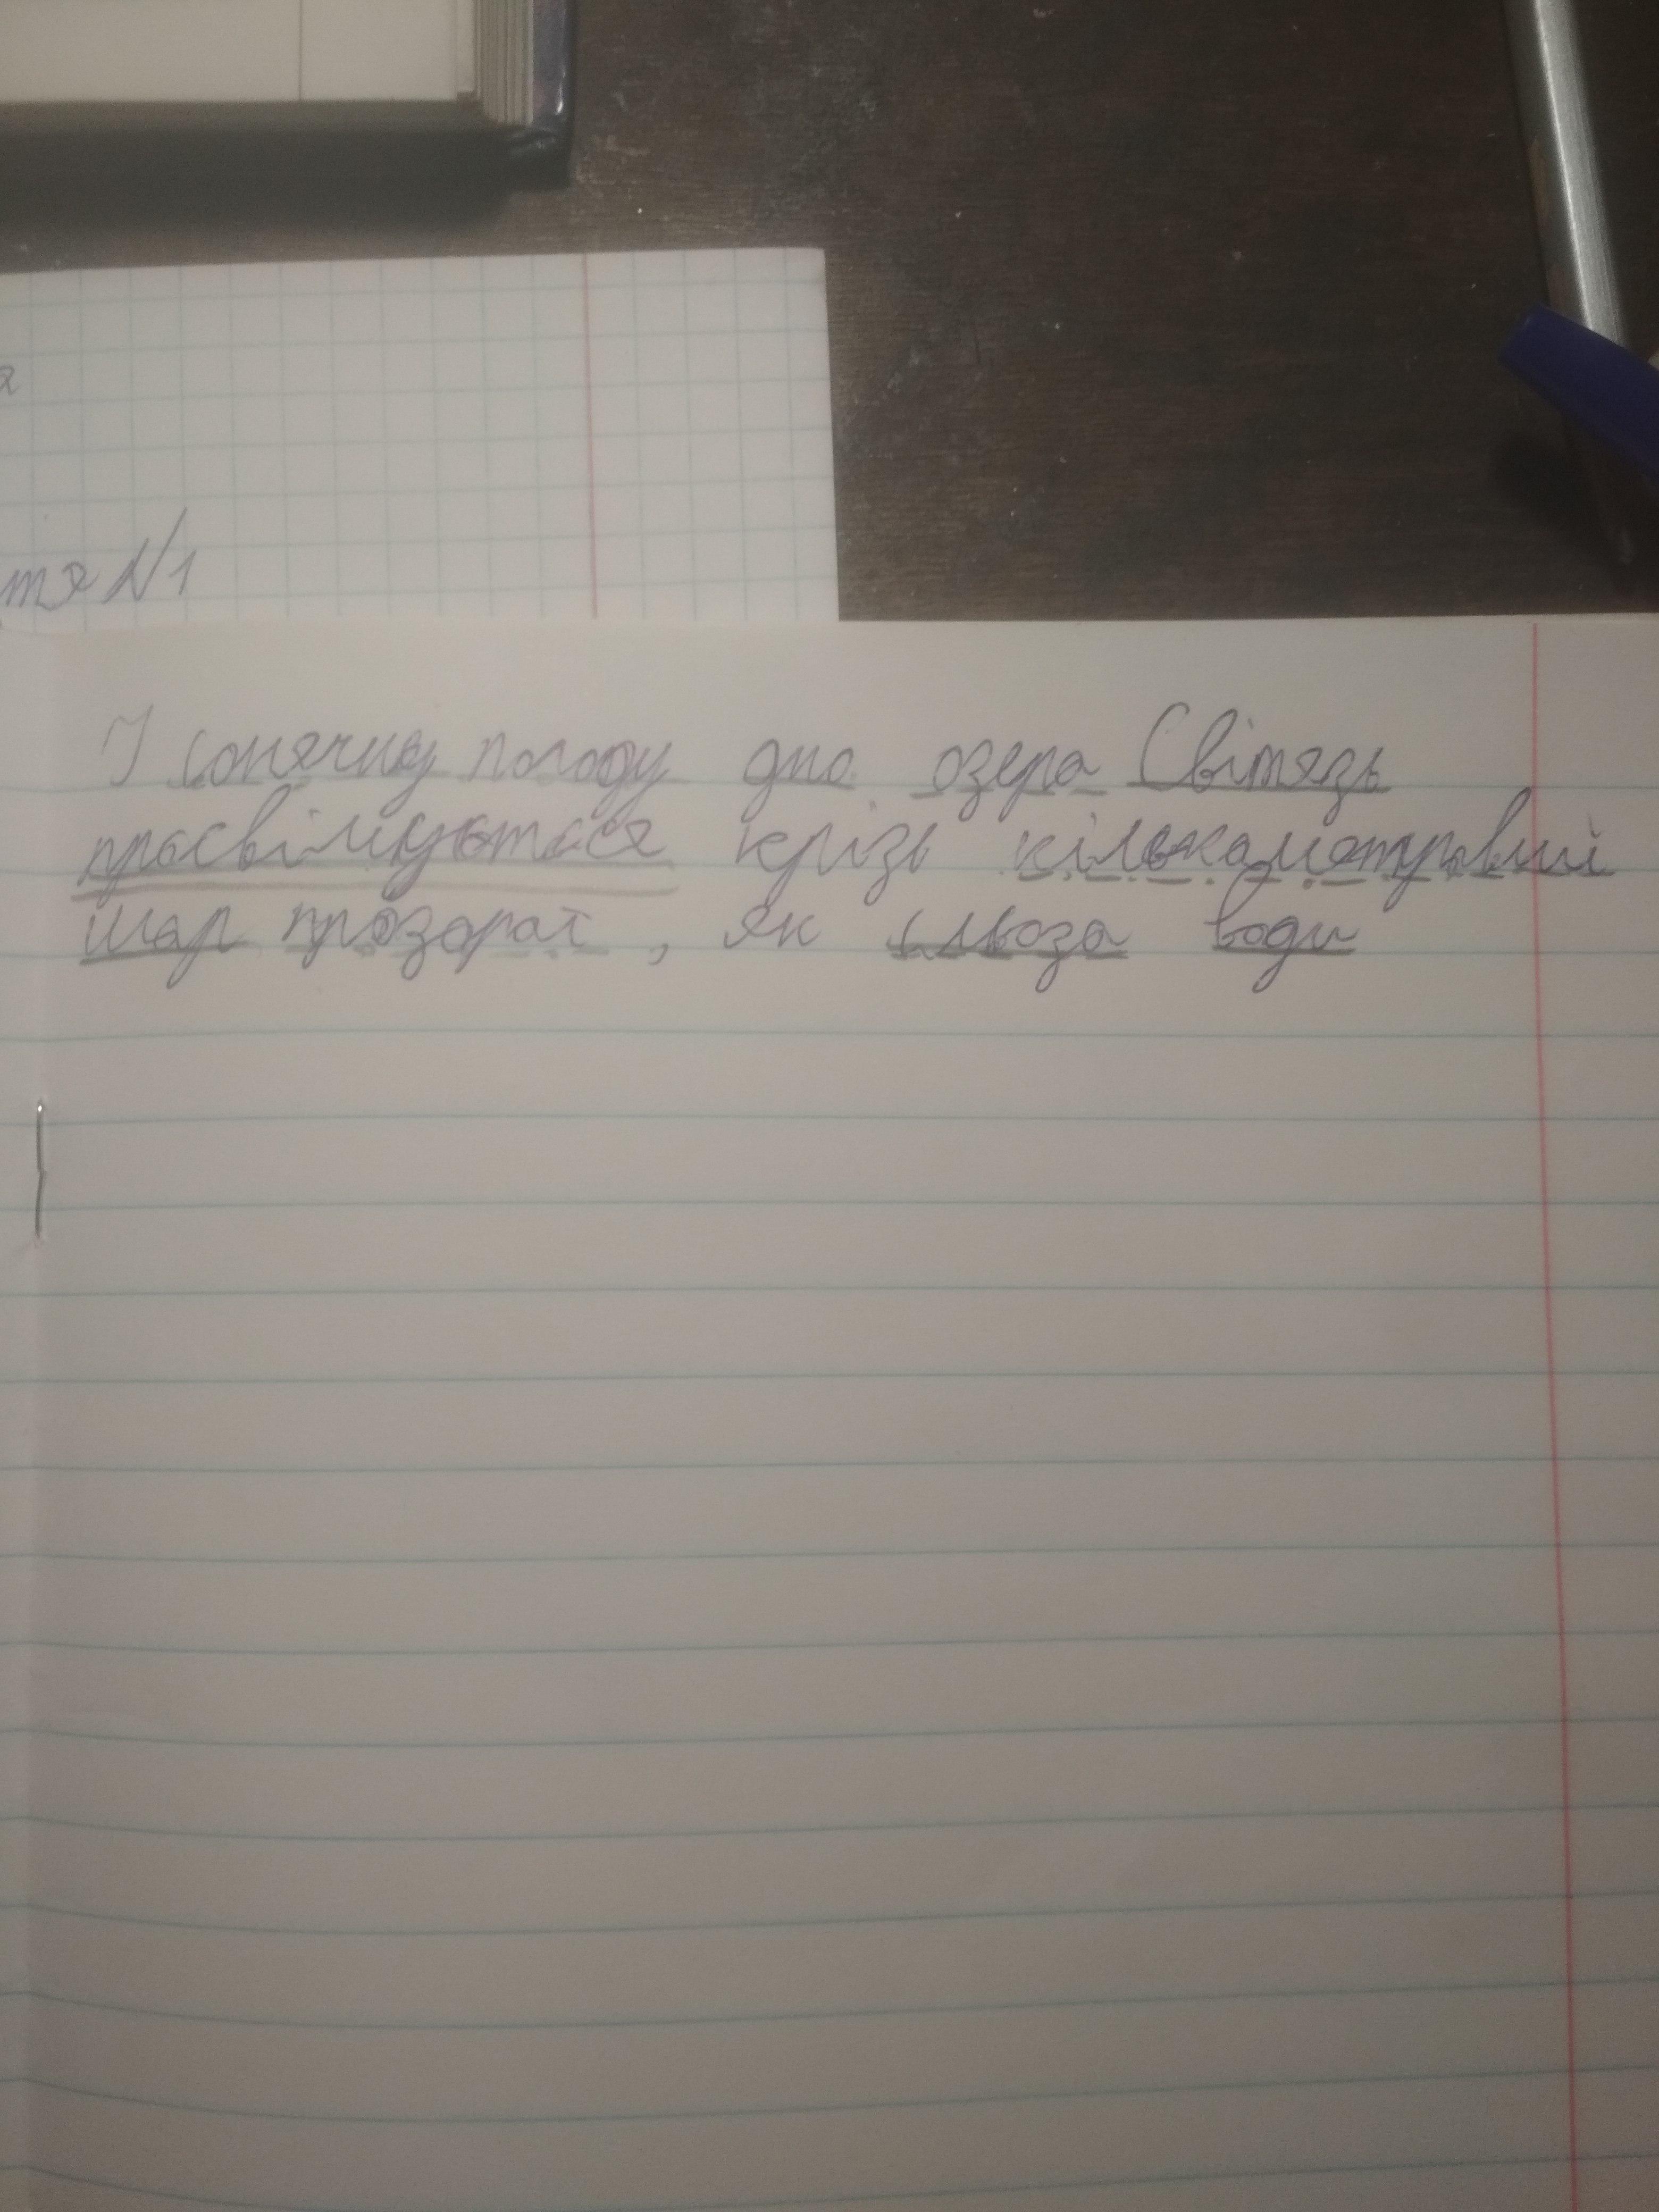 тя №1
І сонячну погоду дно озера Світязь
просвічується крізь кількаметровий
шар прозорої, як сльоза води